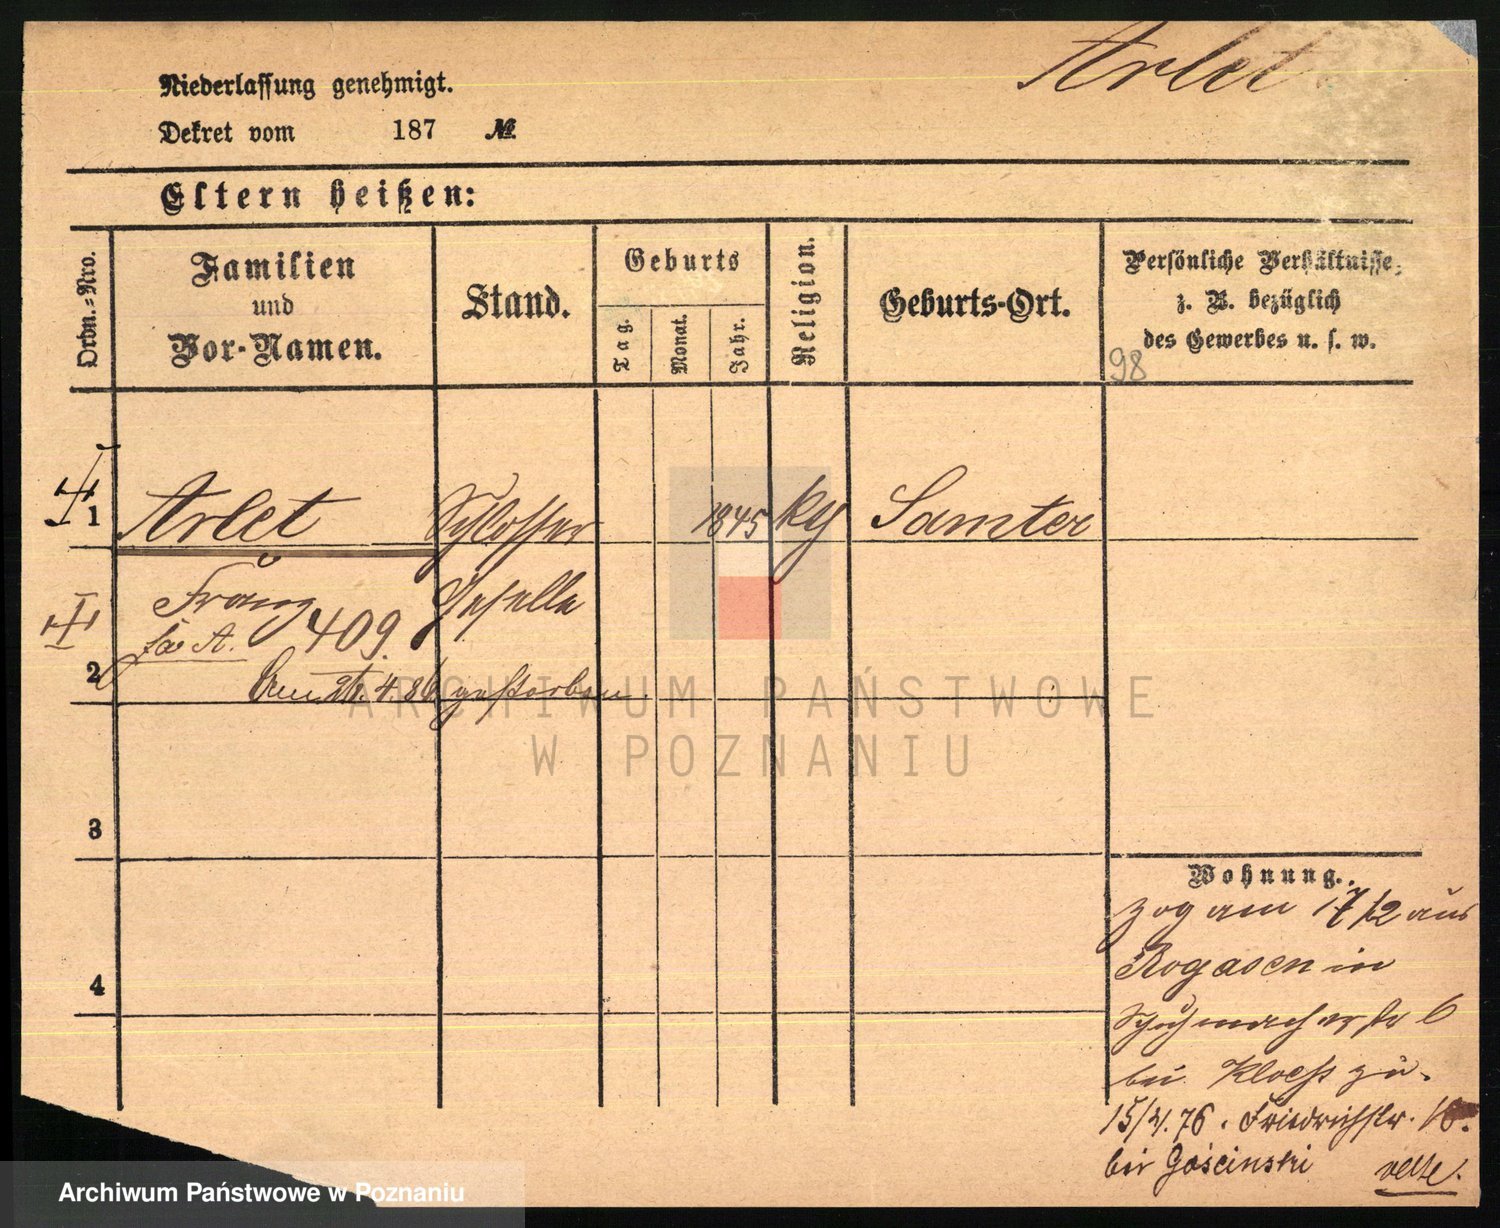 Arlet
Niederlassung genehmigt.
Dekret vom 187 №
Eltern heißen:
Ordn.=Nro.
Familien
und
Vor-Namen.
Stand.
Geburts
Tag.
Monat.
Jahr.
Religion.
Geburts-Ort.
Persönliche Verhältnisse,
z. B. bezüglich
des Gewerbes u. s. w.
98
1 Arlet Schlosser 1845 kg Samter
Franz Geselle
409.
2 Am 26.4.86 gestorben
3
4
Wohnung.
zog am 17/2 aus
Rogasen in
Schuhmacherstr 6
bei Kloess zu.
15/4.76. Friedrichstr. 16.
bei Gościnski
ARCHIWUM PAŃSTWOWE
W POZNANIU
Archiwum Państwowe w Poznaniu